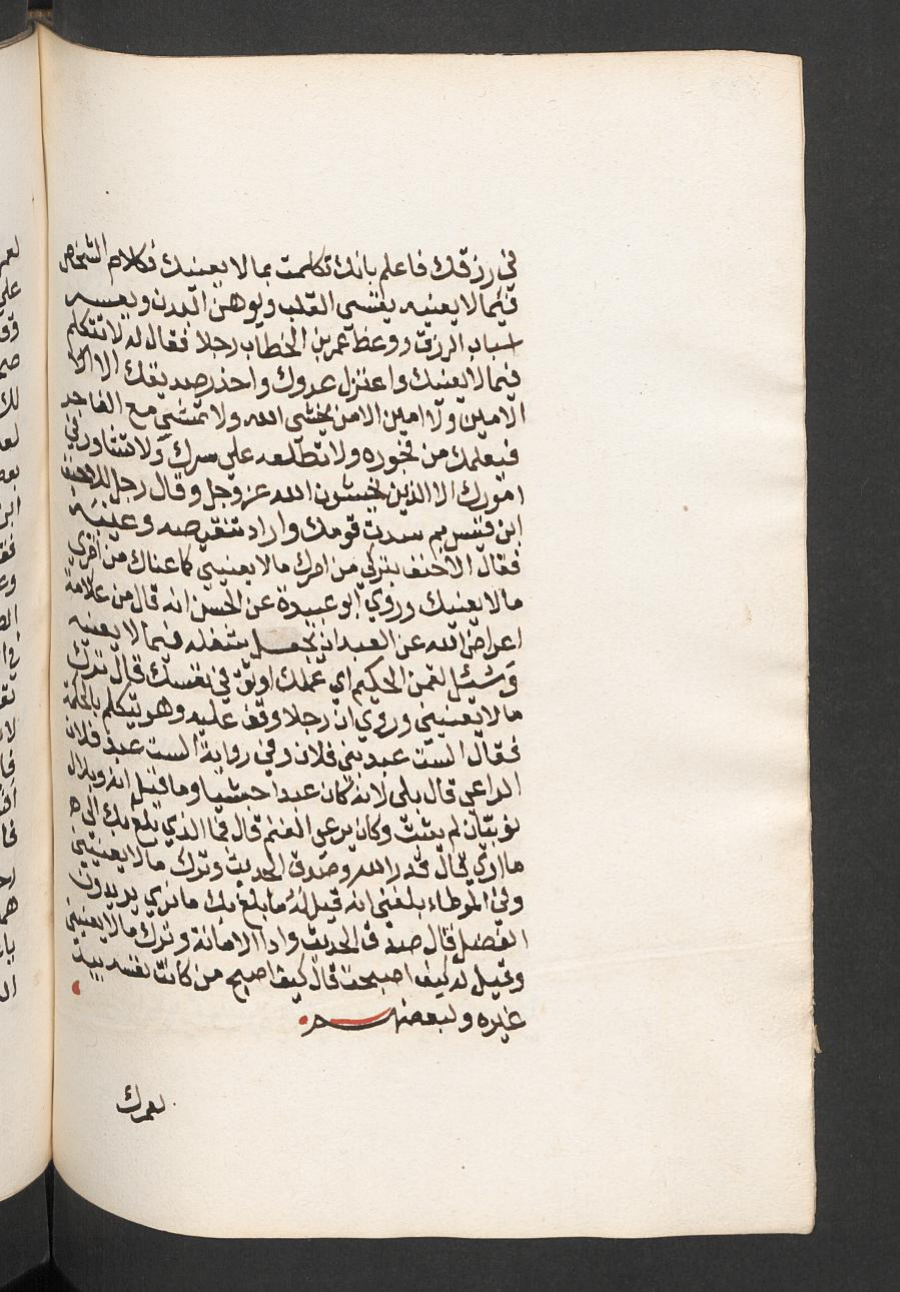 في رزقك فاعلم بانك تكلمت بما لا يعنيك فكلام الشخص
فيما لا يعنيه يقسي القلب ويوهن البدن ويعسر
اسباب الرزق ووعظ عمر بن الخطاب رجلا فقال له لا تتكلم
فيما لا يعنيك واعتزل عدوك واحذر صديقك الا
الامين ولا امين الا من يخشى الله ولا تمشي مع الفاجر
فيعلمك من فجوره ولا تطلعه على سرك ولا تشاور في
امورك الا الذين يخشون الله عز وجل وقال رجل للاحنف
ابن قيس بم سدت قومك واراد تنقيصه وعيبه
فقال الاحنف بتركي من امرك ما لا يعنيني كما عناك من امري
ما لا يعنيك وروي ابو عبيدة عن الحسن انه قال من علامة
اعراض الله عن العبد ان يجعل شغله فيما لا يعنيه
وسئل لقمن الحكيم اي عملك اوثق في نفسك قال ترك
ما لا يعنيني وروي ان رجلا وقف عليه وهو يتكلم بالحكمة
فقال الست عبد بني فلان وفي رواية الست عبد فلان
الراعي قال بلى لانه كان عبدا حبشيا وما قيل انه وبلال
نوبيان لم يثبت وكان يرعى الغنم قال فما الذي بلغ بك الى
ما ارى قال قدر الله وصدق الحديث وترك ما لا يعنيني
وفي الموطاء بلغني انه قيل له ما بلغ بك ما نرى يريدون
الفضل قال صدق الحديث واداا الامانة وترك ما لا يعنيني
وقيل له كيف اصبحت قال كيف اصبح من كانت نفسه بيد
غيره ولبعضهم
لعمرك